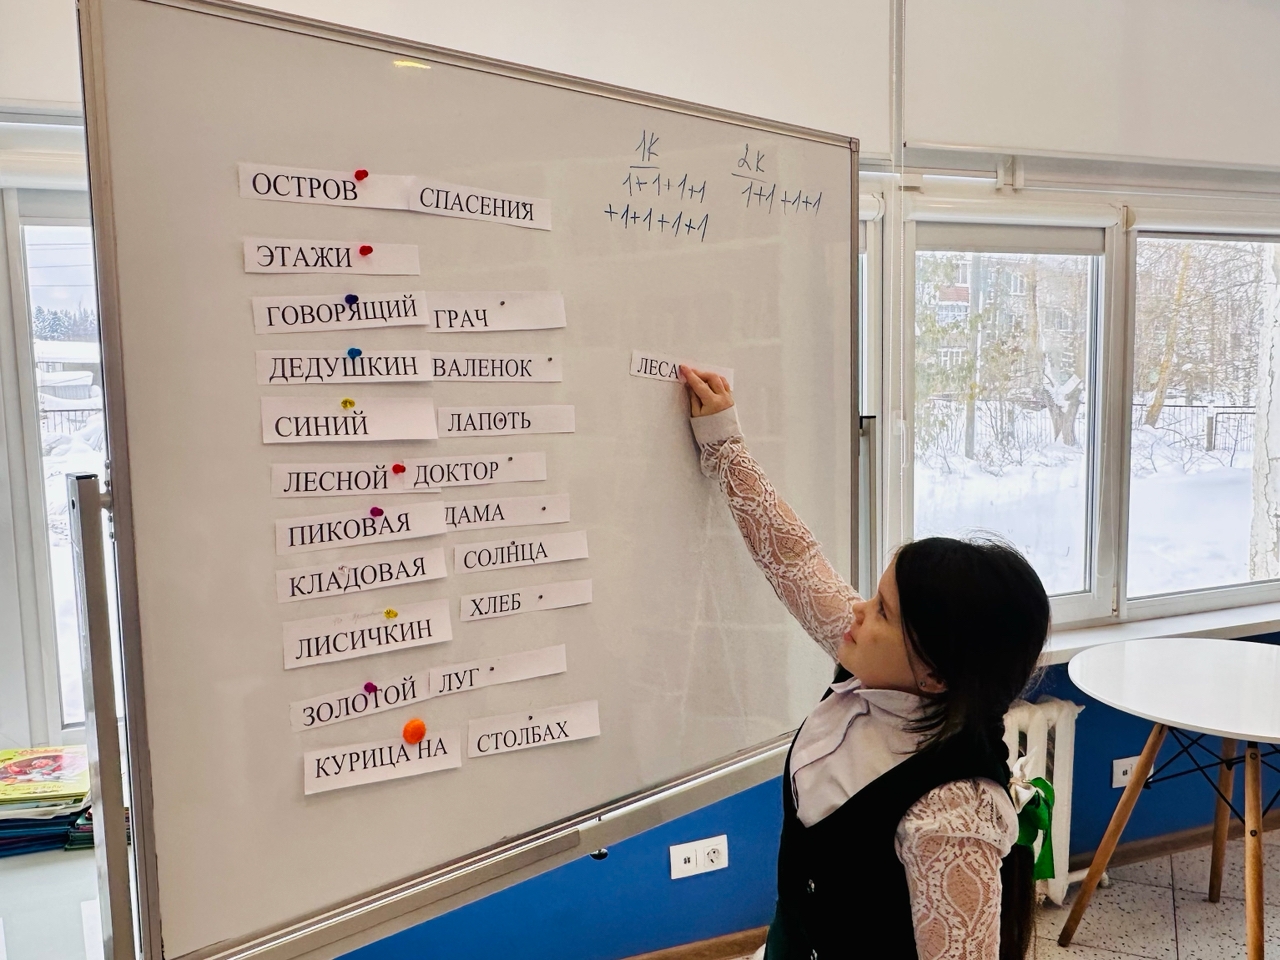 ОСТРОВ СПАСЕНИЯ
ЭТАЖИ
ГОВОРЯЩИЙ ГРАЧ
ДЕДУШКИН ВАЛЕНОК
СИНИЙ ЛАПОТЬ
ЛЕСНОЙ ДОКТОР
ПИКОВАЯ ДАМА
КЛАДОВАЯ СОЛНЦА
ЛИСИЧКИН ХЛЕБ
ЗОЛОТОЙ ЛУГ
КУРИЦА НА СТОЛБАХ
1К
1+1+1+1
+1+1+1+1
2К
1+1+1+1
ЛЕСА